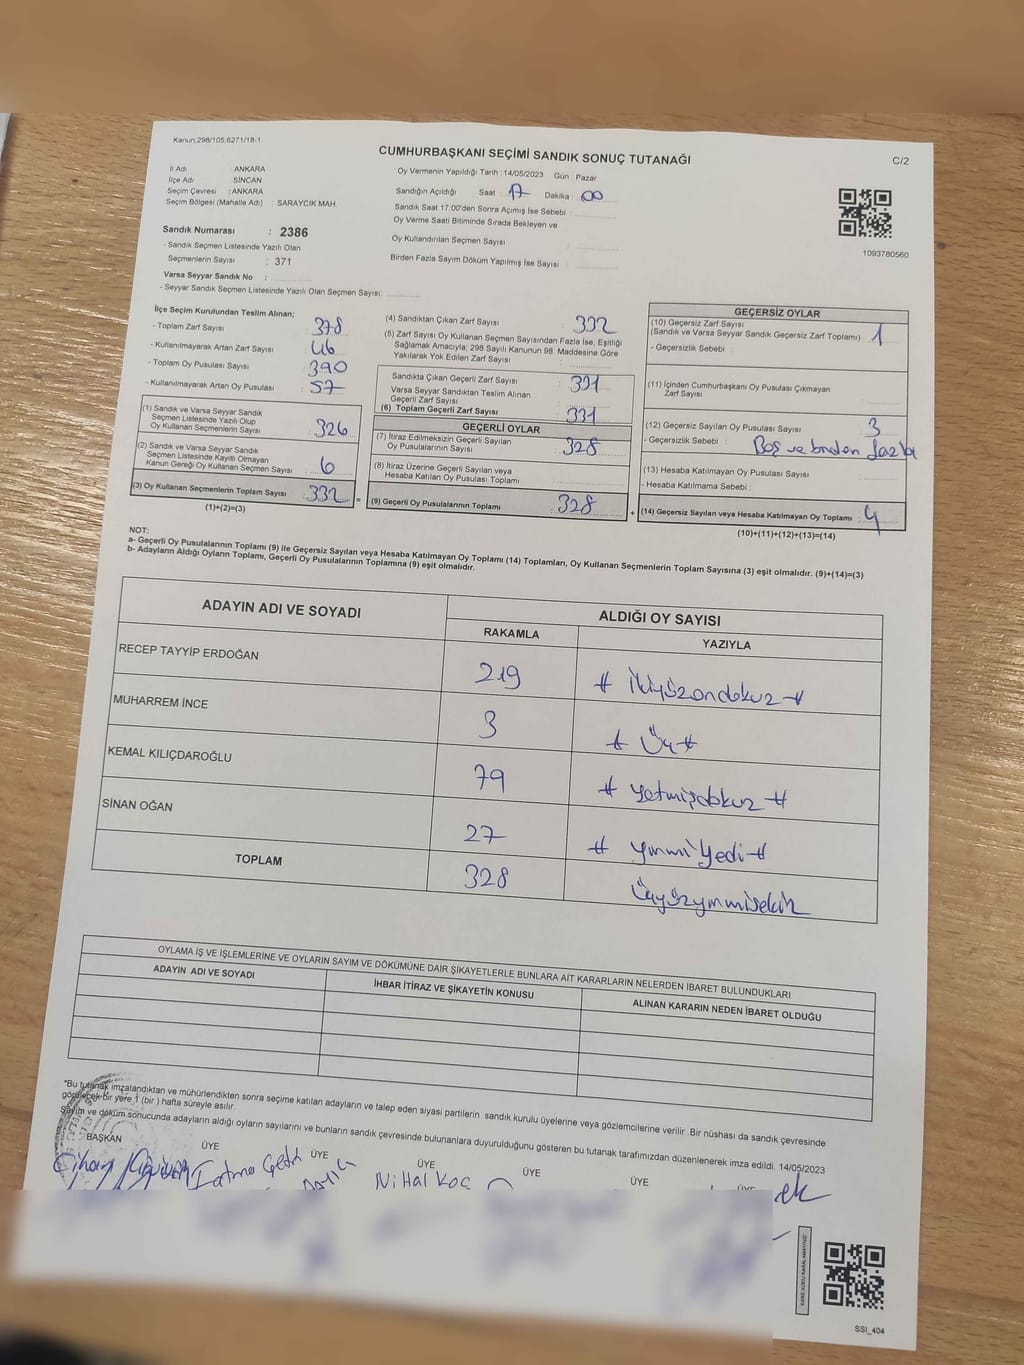 Kanun:298/105,6271/18-1
CUMHURBAŞKANI SEÇİMİ SANDIK SONUÇ TUTANAĞI
C/2
İl Adı : ANKARA
İlçe Adı : SİNCAN
Seçim Çevresi : ANKARA
Seçim Bölgesi (Mahalle Adı) : SARAYCIK MAH.
Oy Vermenin Yapıldığı Tarih : 14/05/2023 Gün : Pazar
Sandığın Açıldığı Saat : 17 Dakika : 00
Sandık Saat 17:00'den Sonra Açımış İse Sebebi :
Oy Verme Saati Bitiminde Sırada Bekleyen ve
Oy Kullandırılan Seçmen Sayısı :
Birden Fazla Sayım Döküm Yapılmış İse Sayısı :
1093780560
Sandık Numarası : 2386
- Sandık Seçmen Listesinde Yazılı Olan
Seçmenlerin Sayısı : 371
Varsa Seyyar Sandık No :
- Seyyar Sandık Seçmen Listesinde Yazılı Olan Seçmen Sayısı:
İlçe Seçim Kurulundan Teslim Alınan;
- Toplam Zarf Sayısı : 378
- Kullanılmayarak Artan Zarf Sayısı : 46
- Toplam Oy Pusulası Sayısı : 390
- Kullanılmayarak Artan Oy Pusulası : 57
(1) Sandık ve Varsa Seyyar Sandık
Seçmen Listesinde Yazılı Olup
Oy Kullanan Seçmenlerin Sayısı : 326
(2) Sandık ve Varsa Seyyar Sandık
Seçmen Listesinde Kayıtlı Olmayan
Kanun Gereği Oy Kullanan Seçmen Sayısı : 6
(3) Oy Kullanan Seçmenlerin Toplam Sayısı : 332 =
(1)+(2)=(3)
(4) Sandıktan Çıkan Zarf Sayısı : 332
(5) Zarf Sayısı Oy Kullanan Seçmen Sayısından Fazla İse, Eşitliği
Sağlamak Amacıyla; 298 Sayılı Kanunun 98. Maddesine Göre
Yakılarak Yok Edilen Zarf Sayısı :
Sandıkta Çıkan Geçerli Zarf Sayısı : 331
Varsa Seyyar Sandıktan Teslim Alınan
Geçerli Zarf Sayısı :
(6) Toplam Geçerli Zarf Sayısı : 331
GEÇERLİ OYLAR
(7) İtiraz Edilmeksizin Geçerli Sayılan
Oy Pusulalarının Sayısı : 328
(8) İtiraz Üzerine Geçerli Sayılan veya
Hesaba Katılan Oy Pusulası Toplamı :
(9) Geçerli Oy Pusulalarının Toplamı : 328 +
GEÇERSİZ OYLAR
(10) Geçersiz Zarf Sayısı
(Sandık ve Varsa Seyyar Sandık Geçersiz Zarf Toplamı) : 1
- Geçersizlik Sebebi :
(11) İçinden Cumhurbaşkanı Oy Pusulası Çıkmayan
Zarf Sayısı :
(12) Geçersiz Sayılan Oy Pusulası Sayısı : 3
- Geçersizlik Sebebi : Boş ve birden fazla
(13) Hesaba Katılmayan Oy Pusulası Sayısı :
- Hesaba Katılmama Sebebi :
(14) Geçersiz Sayılan veya Hesaba Katılmayan Oy Toplamı : 4
(10)+(11)+(12)+(13)=(14)
NOT:
a- Geçerli Oy Pusulalarının Toplamı (9) ile Geçersiz Sayılan veya Hesaba Katılmayan Oy Toplamı (14) Toplamları, Oy Kullanan Seçmenlerin Toplam Sayısına (3) eşit olmalıdır. (9)+(14)=(3)
b- Adayların Aldığı Oyların Toplamı, Geçerli Oy Pusulalarının Toplamına (9) eşit olmalıdır.
ADAYIN ADI VE SOYADI
ALDIĞI OY SAYISI
RAKAMLA YAZIYLA
RECEP TAYYİP ERDOĞAN 219 # ikiyüzondokuz #
MUHARREM İNCE 3 # Üç #
KEMAL KILIÇDAROĞLU 79 # yetmişdokuz #
SİNAN OĞAN 27 # yirmiYedi #
TOPLAM 328 Üçyüzyirmisekiz
OYLAMA İŞ VE İŞLEMLERİNE VE OYLARIN SAYIM VE DÖKÜMÜNE DAİR ŞİKAYETLERLE BUNLARA AİT KARARLARIN NELERDEN İBARET BULUNDUKLARI
ADAYIN ADI VE SOYADI İHBAR İTİRAZ VE ŞİKAYETİN KONUSU ALINAN KARARIN NEDEN İBARET OLDUĞU
*Bu tutanak imzalandıktan ve mühürlendikten sonra seçime katılan adayların ve talep eden siyasi partilerin sandık kurulu üyelerine veya gözlemcilerine verilir .Bir nüshası da sandık çevresinde
görülecek bir yere 1 (bir ) hafta süreyle asılır.
Sayım ve döküm sonucunda adayların aldığı oyların sayılarını ve bunların sandık çevresinde bulunanlara duyurulduğunu gösteren bu tutanak tarafımızdan düzenlenerek imza edildi. 14/05/2023
BAŞKAN ÜYE ÜYE ÜYE ÜYE ÜYE ÜYE
Fatma Nihal Koç
KARE KODU KARALAMAYINIZ!
SSI_404